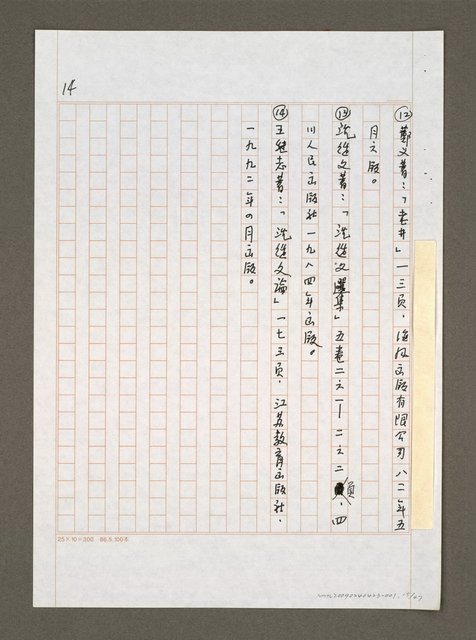 14
⑫鄭义著：「老井」一一三頁，海风出版有限公司八二年五
月出版。
⑬沈從文著：「沈從文選集」五卷二六一－二六二頁，四
川人民出版社一九八四年出版。
⑭王继志著：「沈從文論」一七三頁，江苏教育出版社，
一九九二年の月出版。
25×10=300 86.5.100本